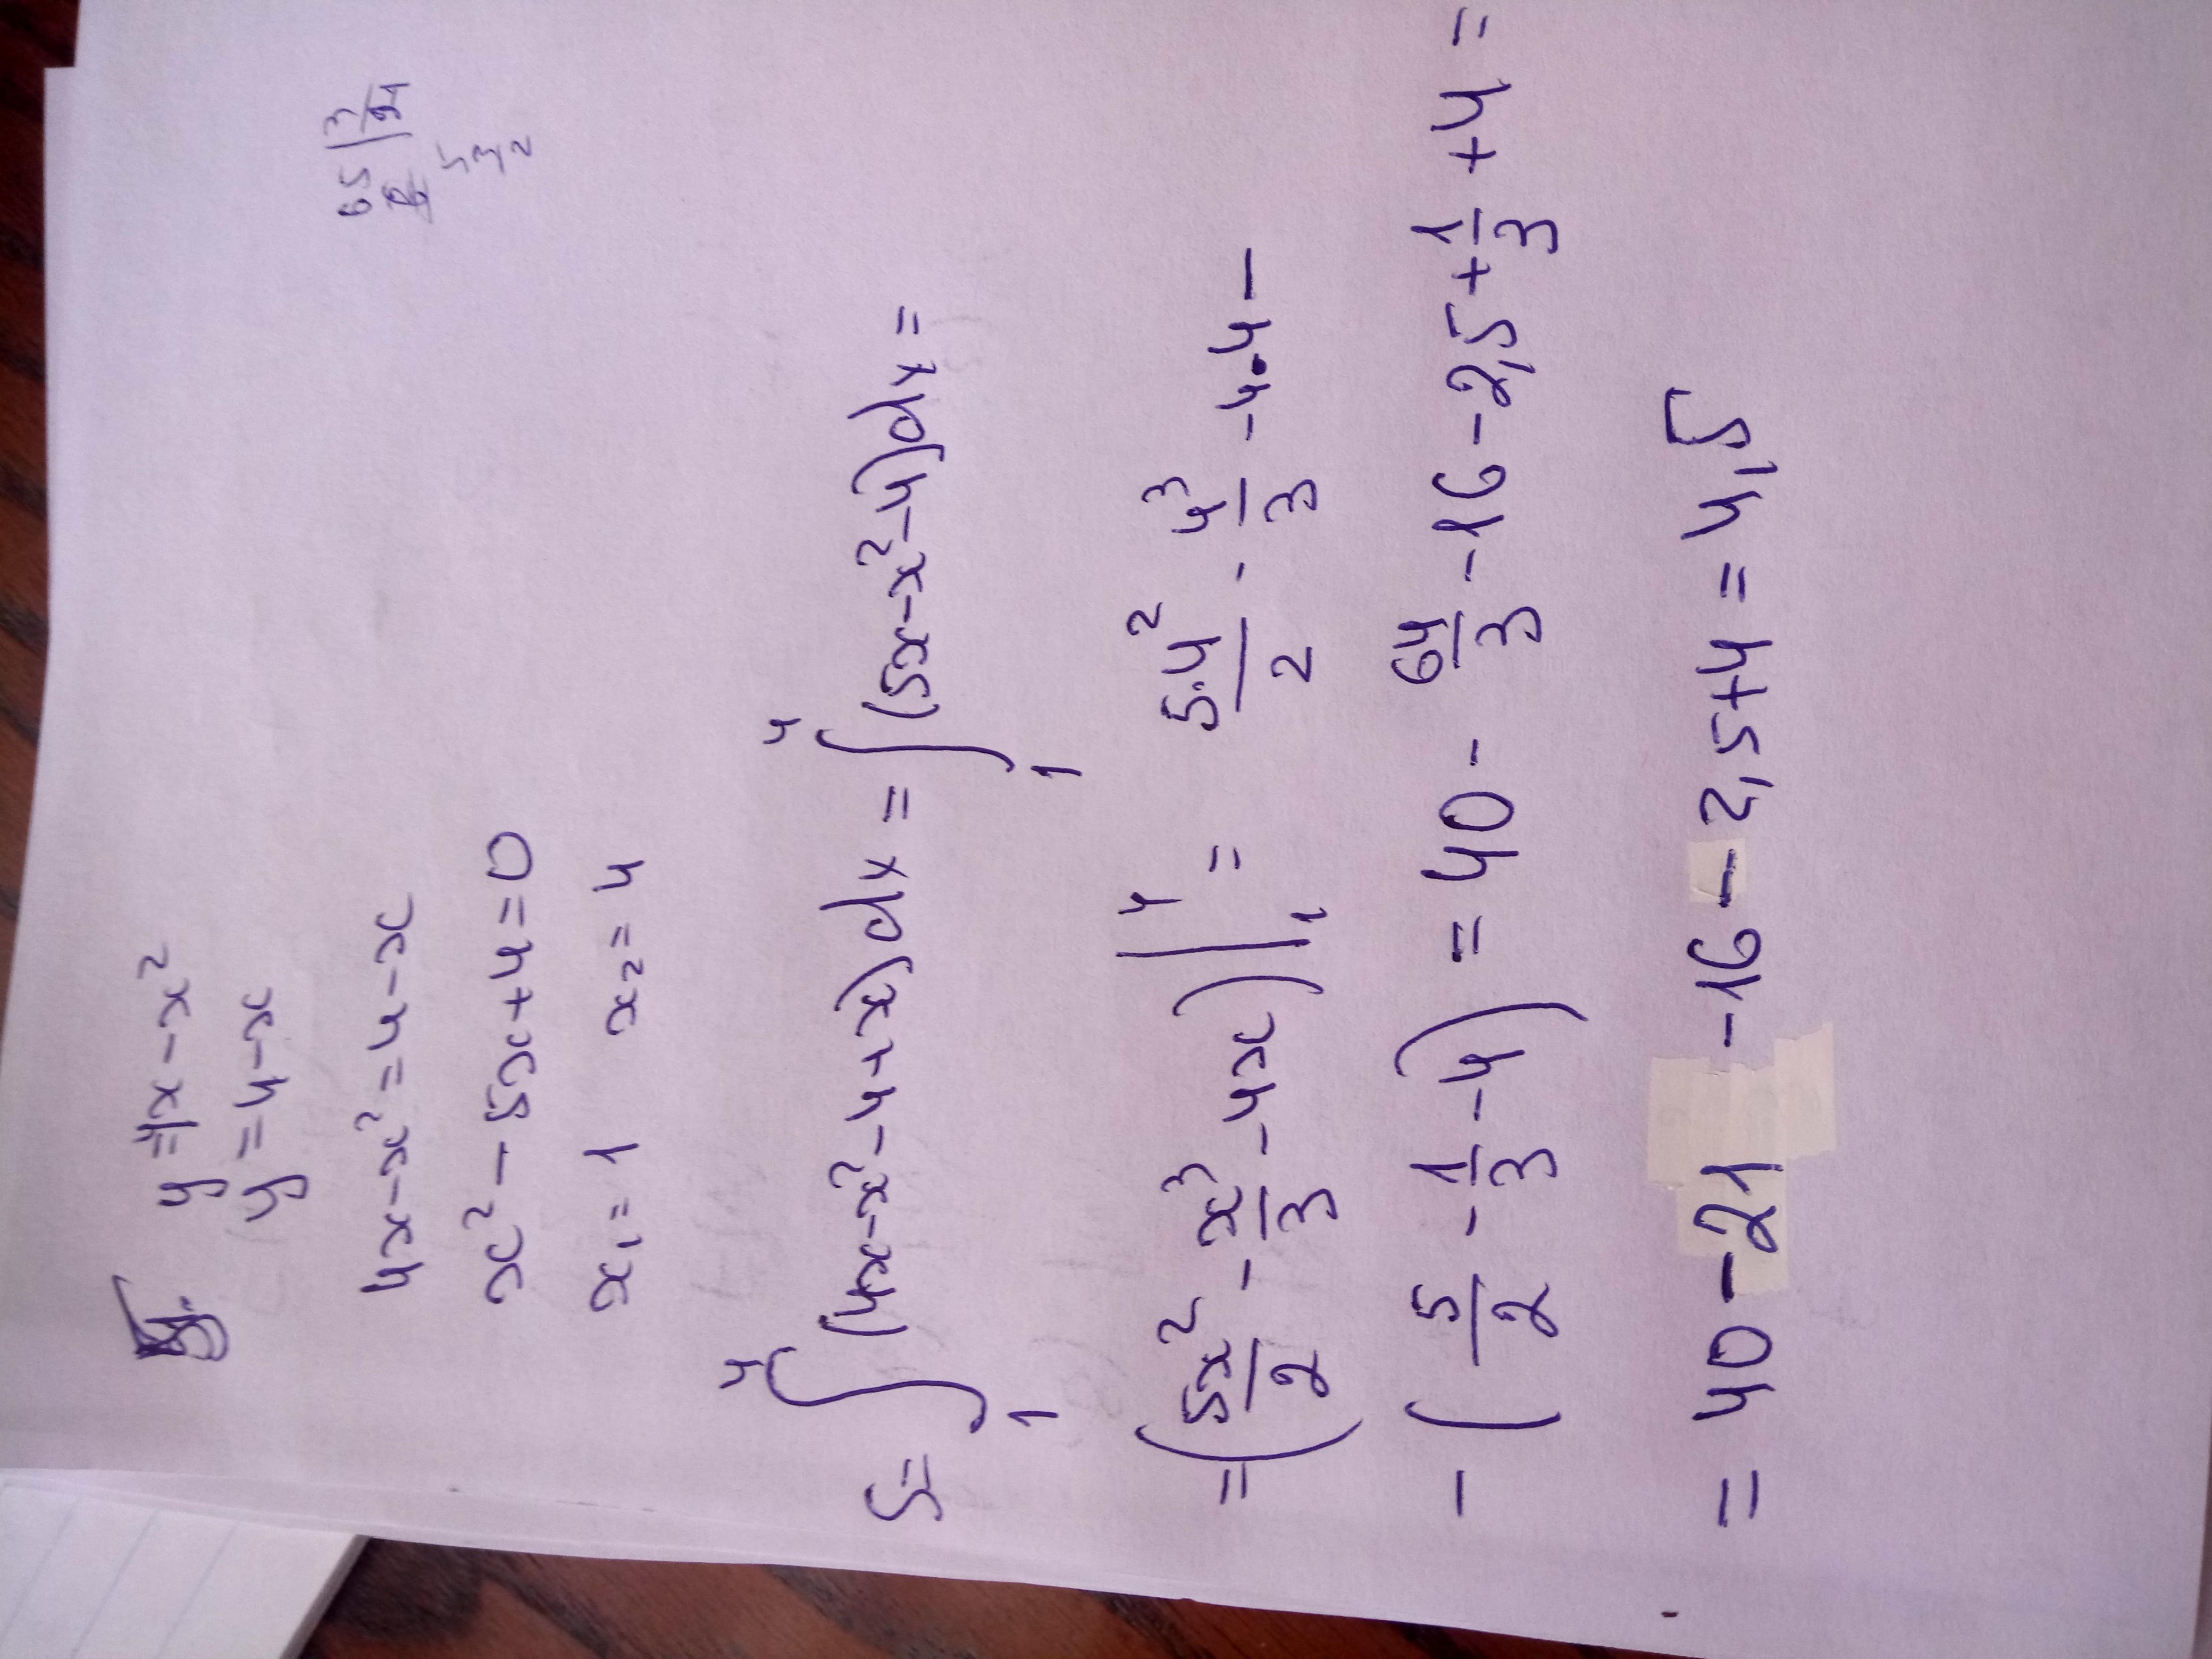 y=4x-x²
y=4-x
4x-x²=4-x
x²-5x+4=0
x₁=1 x₂=4
65 | 3
21
5
3
2
S=∫₁⁴(4x-x²-4+x)dx=∫₁⁴(5x-x²-4)dx=
=(5x²/2-x³/3-4x)|₁⁴= 5·4²/2-4³/3-4·4-
-(5/2-1/3-4)=40-64/3-16-2,5+1/3+4=
=40-21-16-2,5+4=4,5